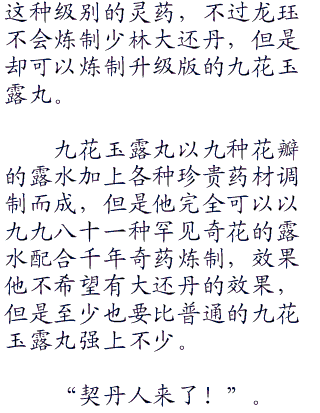 这种级别的灵药，不过龙珏
不会炼制少林大还丹，但是
却可以炼制升级版的九花玉
露丸。
九花玉露丸以九种花瓣
的露水加上各种珍贵药材调
制而成，但是他完全可以以
九九八十一种罕见奇花的露
水配合千年奇药炼制，效果
他不希望有大还丹的效果，
但是至少也要比普通的九花
玉露丸强上不少。
“契丹人来了！”。